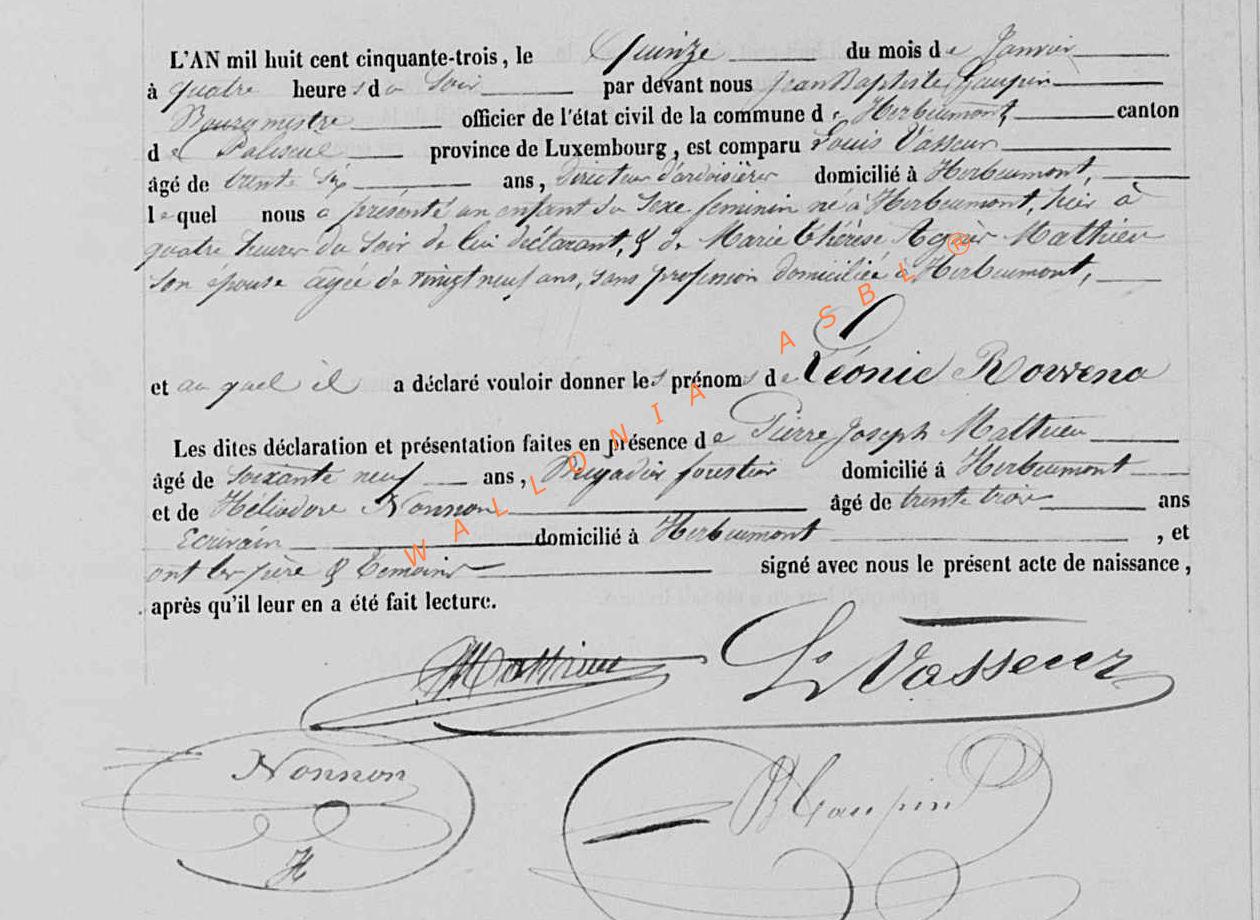 L'AN mil huit cent cinquante-trois, le Quinze du mois de Janvier
à quatre heures du Soir par devant nous Jean Baptiste
Bourgmestre officier de l'état civil de la commune de Herbeumont, canton
de Paliseul province de Luxembourg, est comparu Louis Vasseur
âgé de trente Six ans, Directeur d'ardoisières domicilié à Herbeumont,
lequel nous a présenté un enfant du Sexe feminin né à Herbeumont, hier à
quatre heures du Soir de lui déclarant, & de Marie Thérèse Mathieu
Son épouse agée de vingt neuf ans, Sans profession domiciliée à Herbeumont,
et auquel il a déclaré vouloir donner les prénoms de Léonie Rowena
Les dites déclaration et présentation faites en présence de Pierre Joseph Mathieu
âgé de Soixante neuf ans, Brigadier forestier domicilié à Herbeumont
et de Héliodore Nonnon âgé de trente trois ans
Ecrivain domicilié à Herbeumont, et
ont les père & temoins signé avec nous le présent acte de naissance,
après qu'il leur en a été fait lecture.
Mathieu
Ls Vasseur
Nonnon
H
WALLONIA ASBL ®